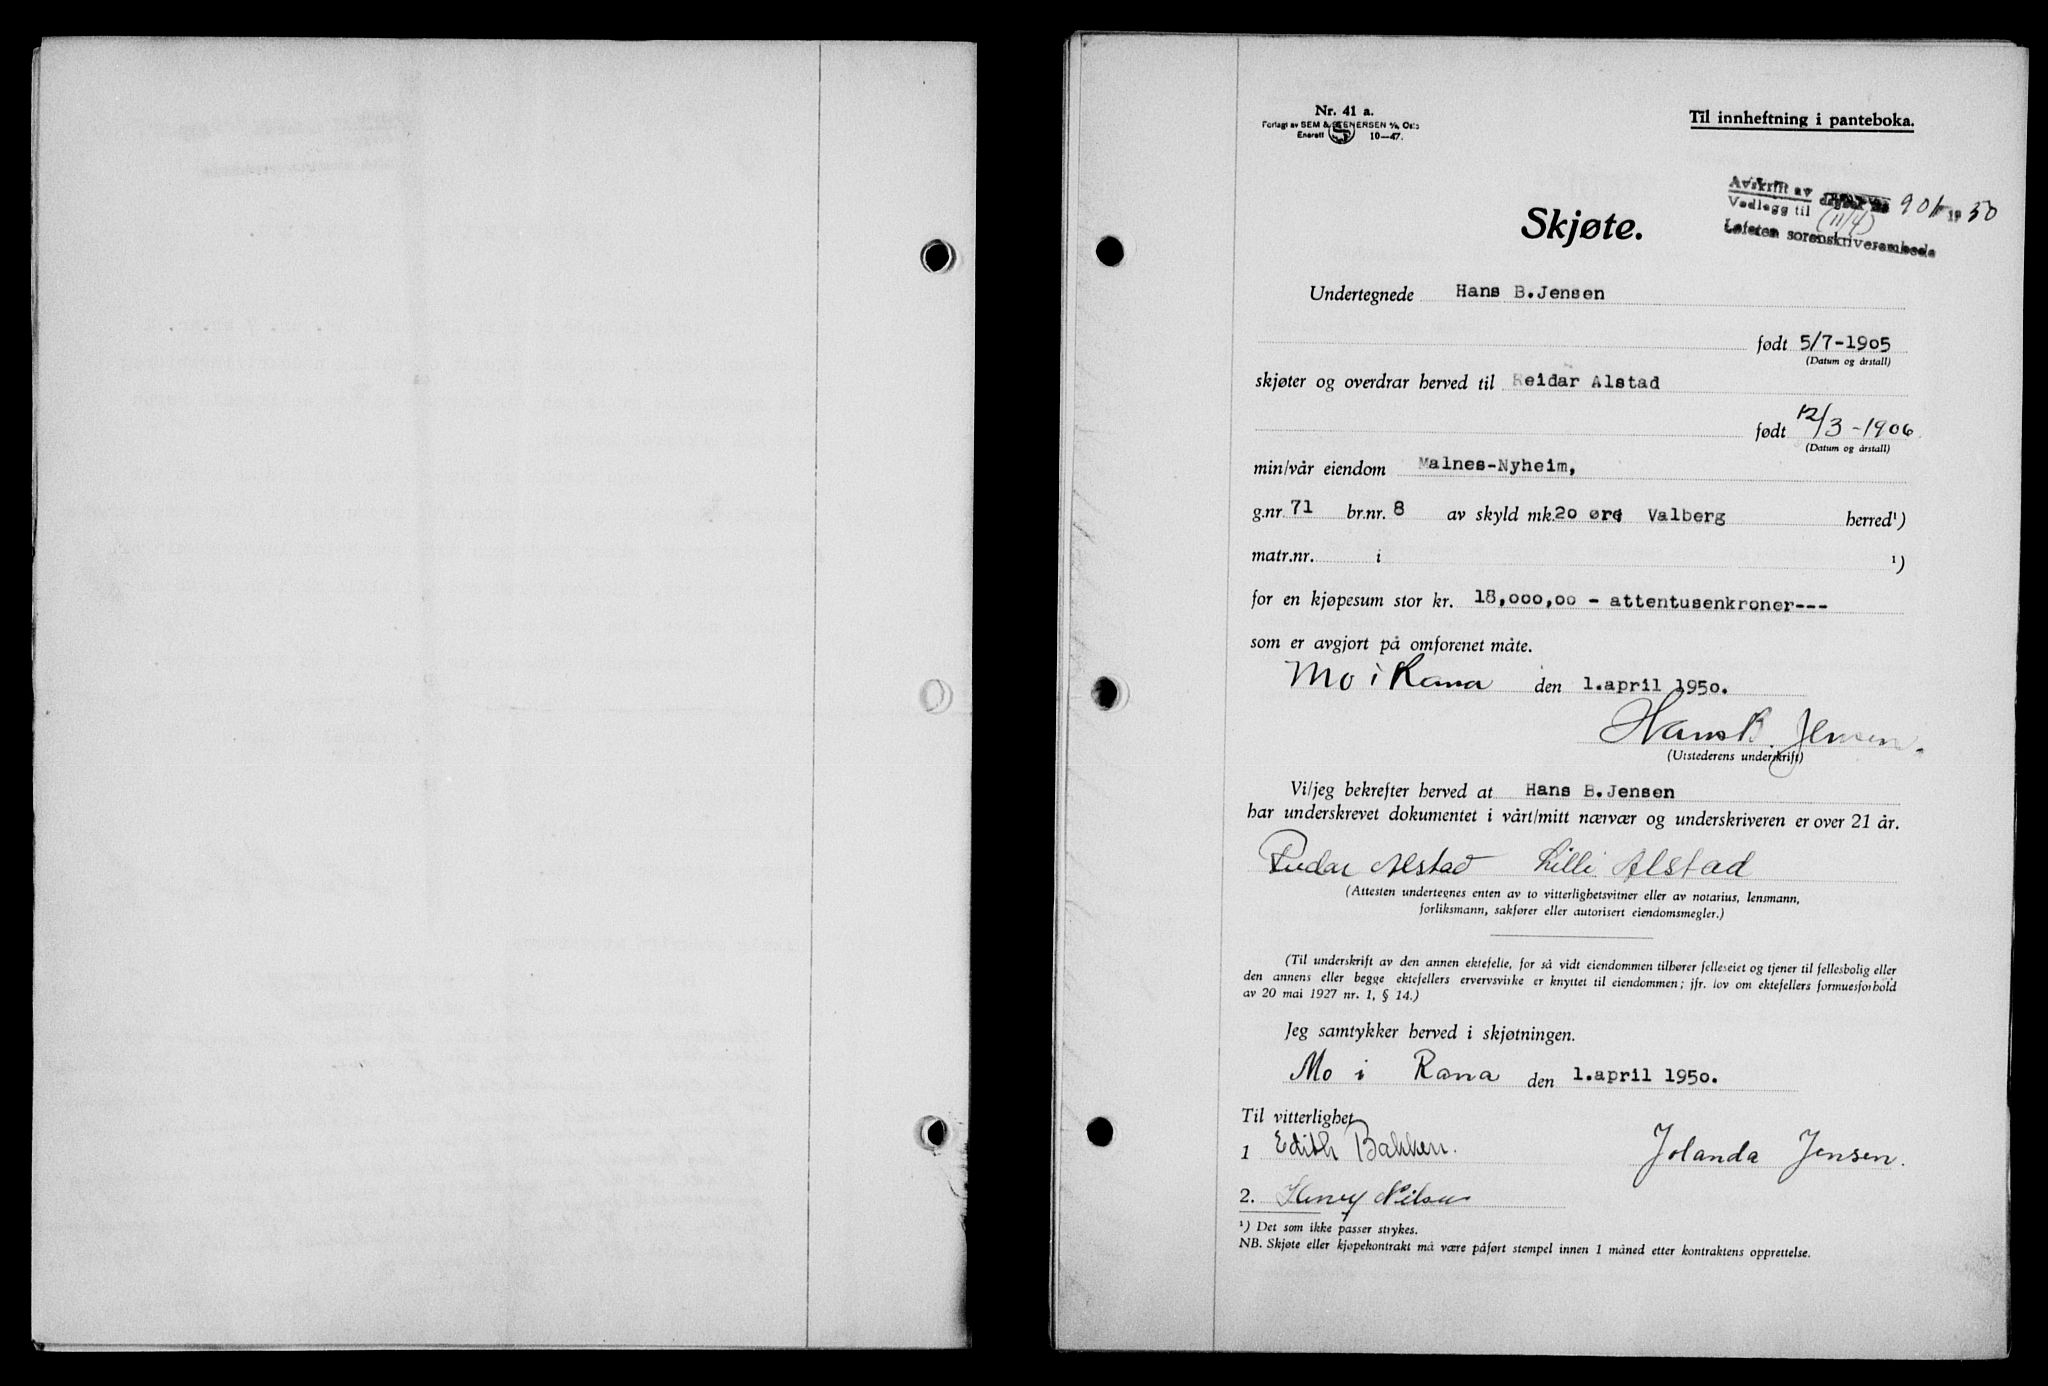 Nr. 41 a.
Forlagt av SEM & STENERSEN A/S, Oslo
Enerett 10-47.
Til innheftning i panteboka.
Avskrift av
Vedlegg til dagbok nr. 901 1950
(11/4)
Lofoten sorenskriverembede
Skjøte.
Undertegnede Hans B.Jensen
født 5/7-1905
(Datum og årstall)
skjøter og overdrar herved til Reidar Alstad
født 12/3-1906.
(Datum og årstall)
min/vår eiendom Malnes-Nyheim,
g.nr. 71 br.nr. 8 av skyld mk. 20 øre i Valberg herred¹)
matr.nr. i ¹)
for en kjøpesum stor kr. 18,000,00 - attentusenkroner---
som er avgjort på omforenet måte.
Mo i Rana den 1.april 1950.
Hans B. Jensen.
(Utstederens underskrift)
Vi/jeg bekrefter herved at Hans B.Jensen
har underskrevet dokumentet i vårt/mitt nærvær og underskriveren er over 21 år.
Reidar Alstad Lilli Alstad
(Attesten undertegnes enten av to vitterlighetsvitner eller av notarius, lensmann,
forliksmann, sakfører eller autorisert eiendomsmegler.)
(Til underskrift av den annen ektefelle, for så vidt eiendommen tilhører felleseiet og tjener til fellesbolig eller
den annens eller begge ektefellers ervervsvirke er knyttet til eiendommen; jfr. lov om ektefellers formuesforhold
av 20 mai 1927 nr. 1, § 14.)
Jeg samtykker herved i skjøtningen.
Mo i Rana den 1.april 1950.
Til vitterlighet
1 Edith Bakken. Jolanda Jensen.
2. Henry Nilsen
¹) Det som ikke passer strykes.
NB. Skjøte eller kjøpekontrakt må være påført stempel innen 1 måned etter kontraktens opprettelse.